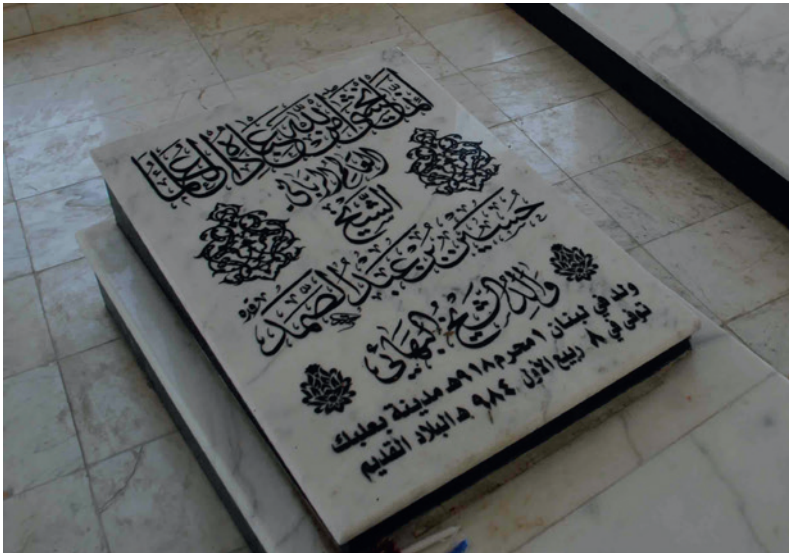 إنما يخشى الله من عباده العلماء
العالم الرباني
الشيخ
حسين بن عبد الصمد
والد الشيخ البهائي
ولد في لبنان ١ محرم ٩١٨ هـ مدينة بعلبك
توفي في ٨ ربيع الاول ٩٨٤ هـ البلاد القديم